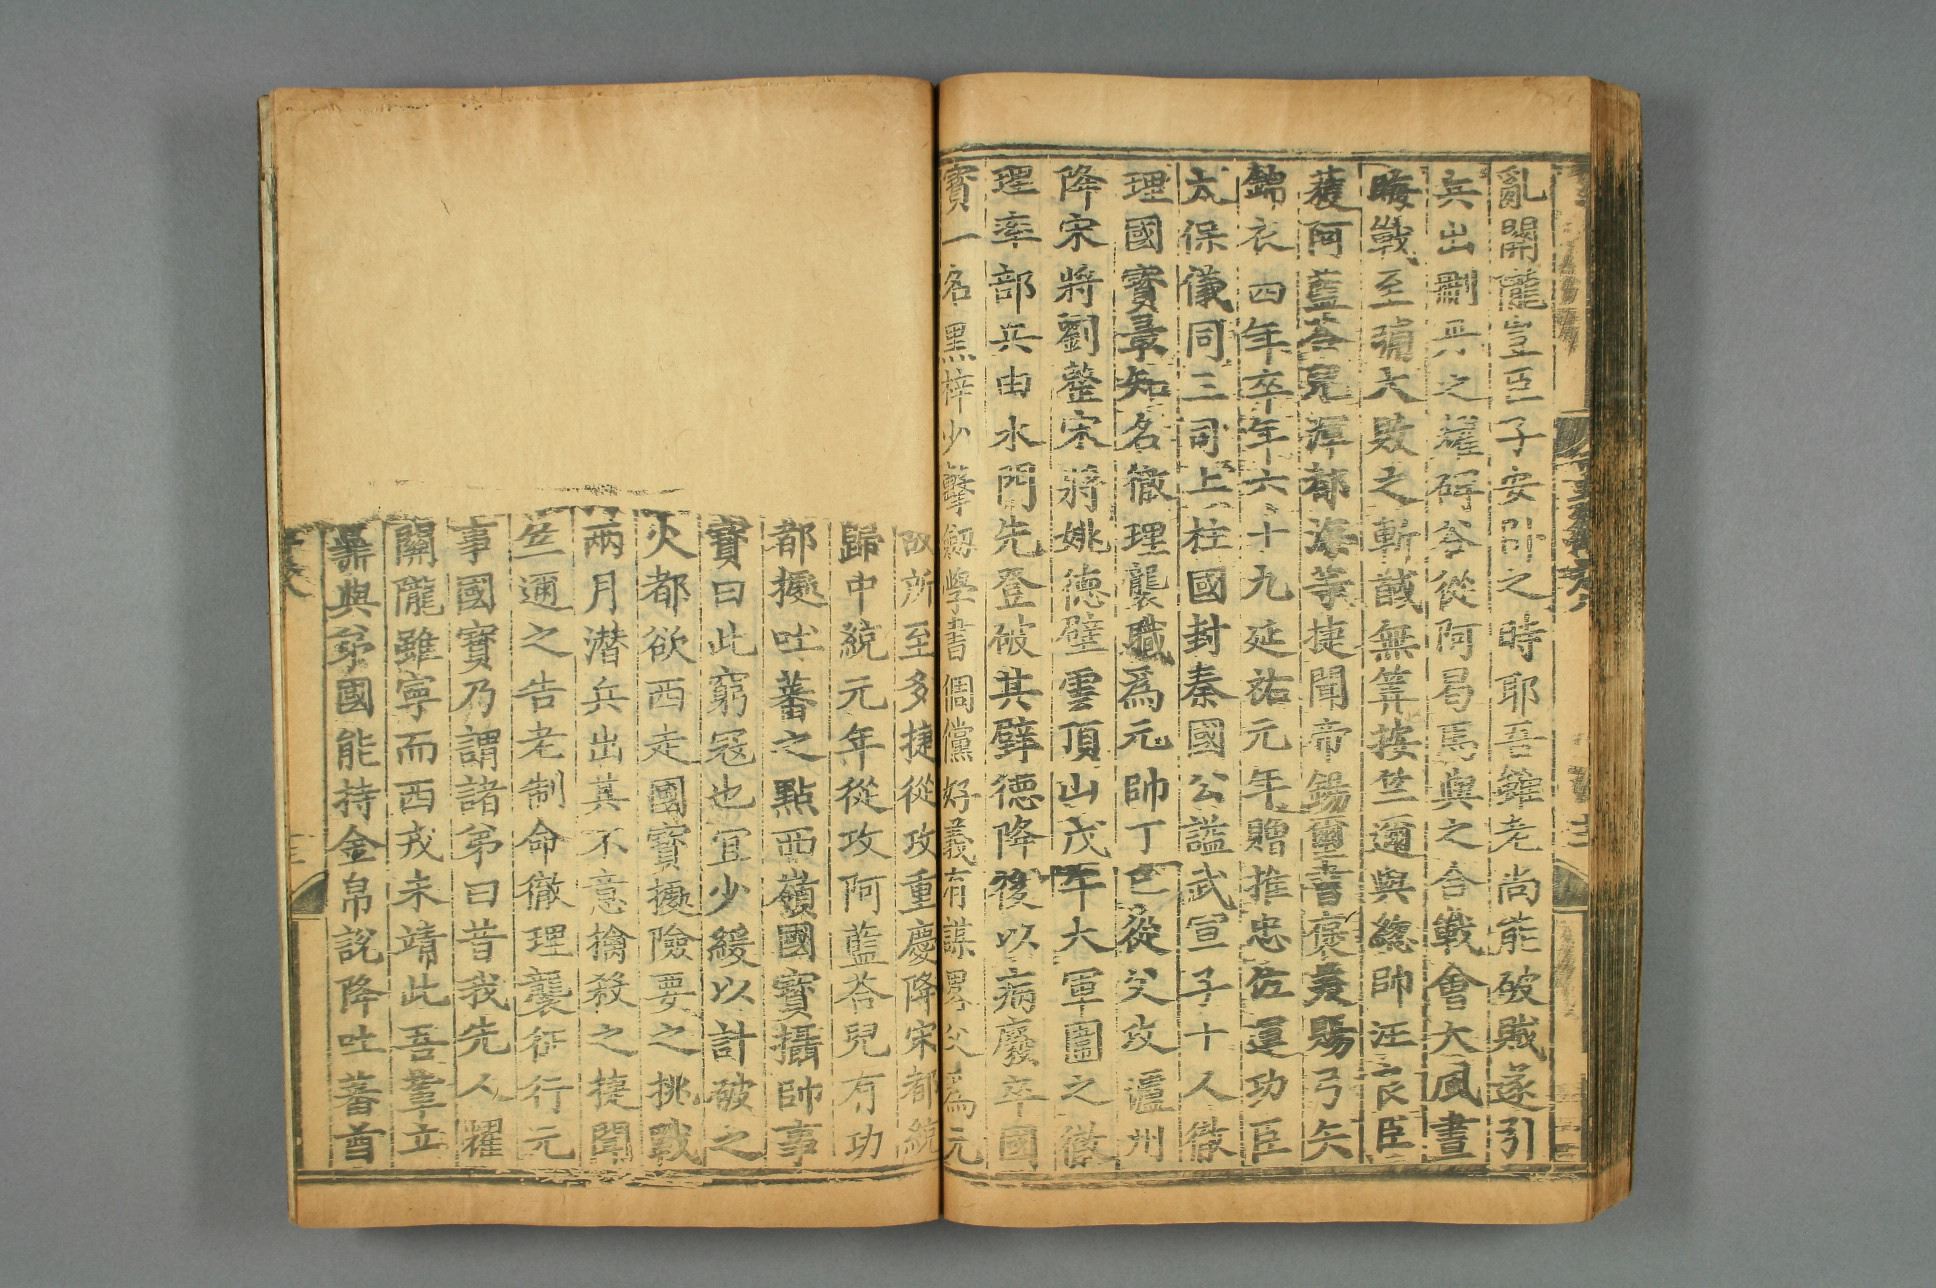 亂關隴豈臣子安卧之時耶吾雖老尚能破賊遂引
兵出刪丹之耀碑谷從阿曷馬與之合戰會大風晝
晦戰至晡大敗之斬馘無筭按竺邇與總帥汪良臣
獲阿藍荅兒渾都海等捷聞帝錫璽書褒美賜弓矢
錦衣四年卒年六十九延祐元年贈推忠佐運功臣
太保儀同三司上柱國封秦國公謚武宣子十人徹
理國寶最知名徹理襲職爲元帥丁巳從父攻瀘州
降宋將劉整宋將姚德壁雲頂山戊午大軍圍之徹
理率部兵由水門先登破其壁德降後以病廢卒國
寳一名黑梓少擊劒學書倜儻好義有謀畧父爲元
故所至多捷從攻重慶降宋都統
歸中統元年從攻阿藍荅兒有功
都擾吐蕃之點西嶺國寳攝帥事
寳曰此窮冦也宜少緩以計破之
火都欲西走國寳擾險要之挑戰
兩月潜兵出其不意擒殺之捷聞
竺邇之告老制命徹理襲征行元
事國寳乃謂諸弟曰昔我先人耀
關隴雖寧而西戎未靖此吾輩立
鼎與弟國能持金帛說降吐蕃酋